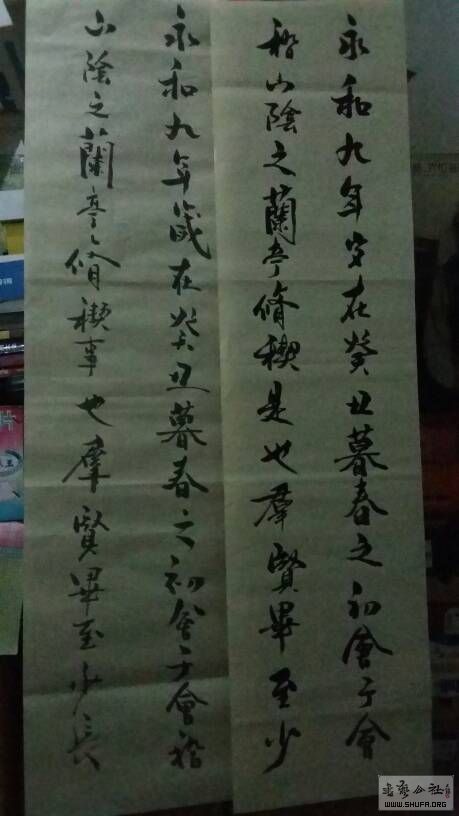 永和九年岁在癸丑暮春之初會于會
稽山陰之蘭亭脩稧是也羣賢畢至少
永和九年歲在癸丑暮春之初會于會稽
山陰之蘭亭脩稧事也羣賢畢至少長
书艺公社
WWW.SHUFA.ORG